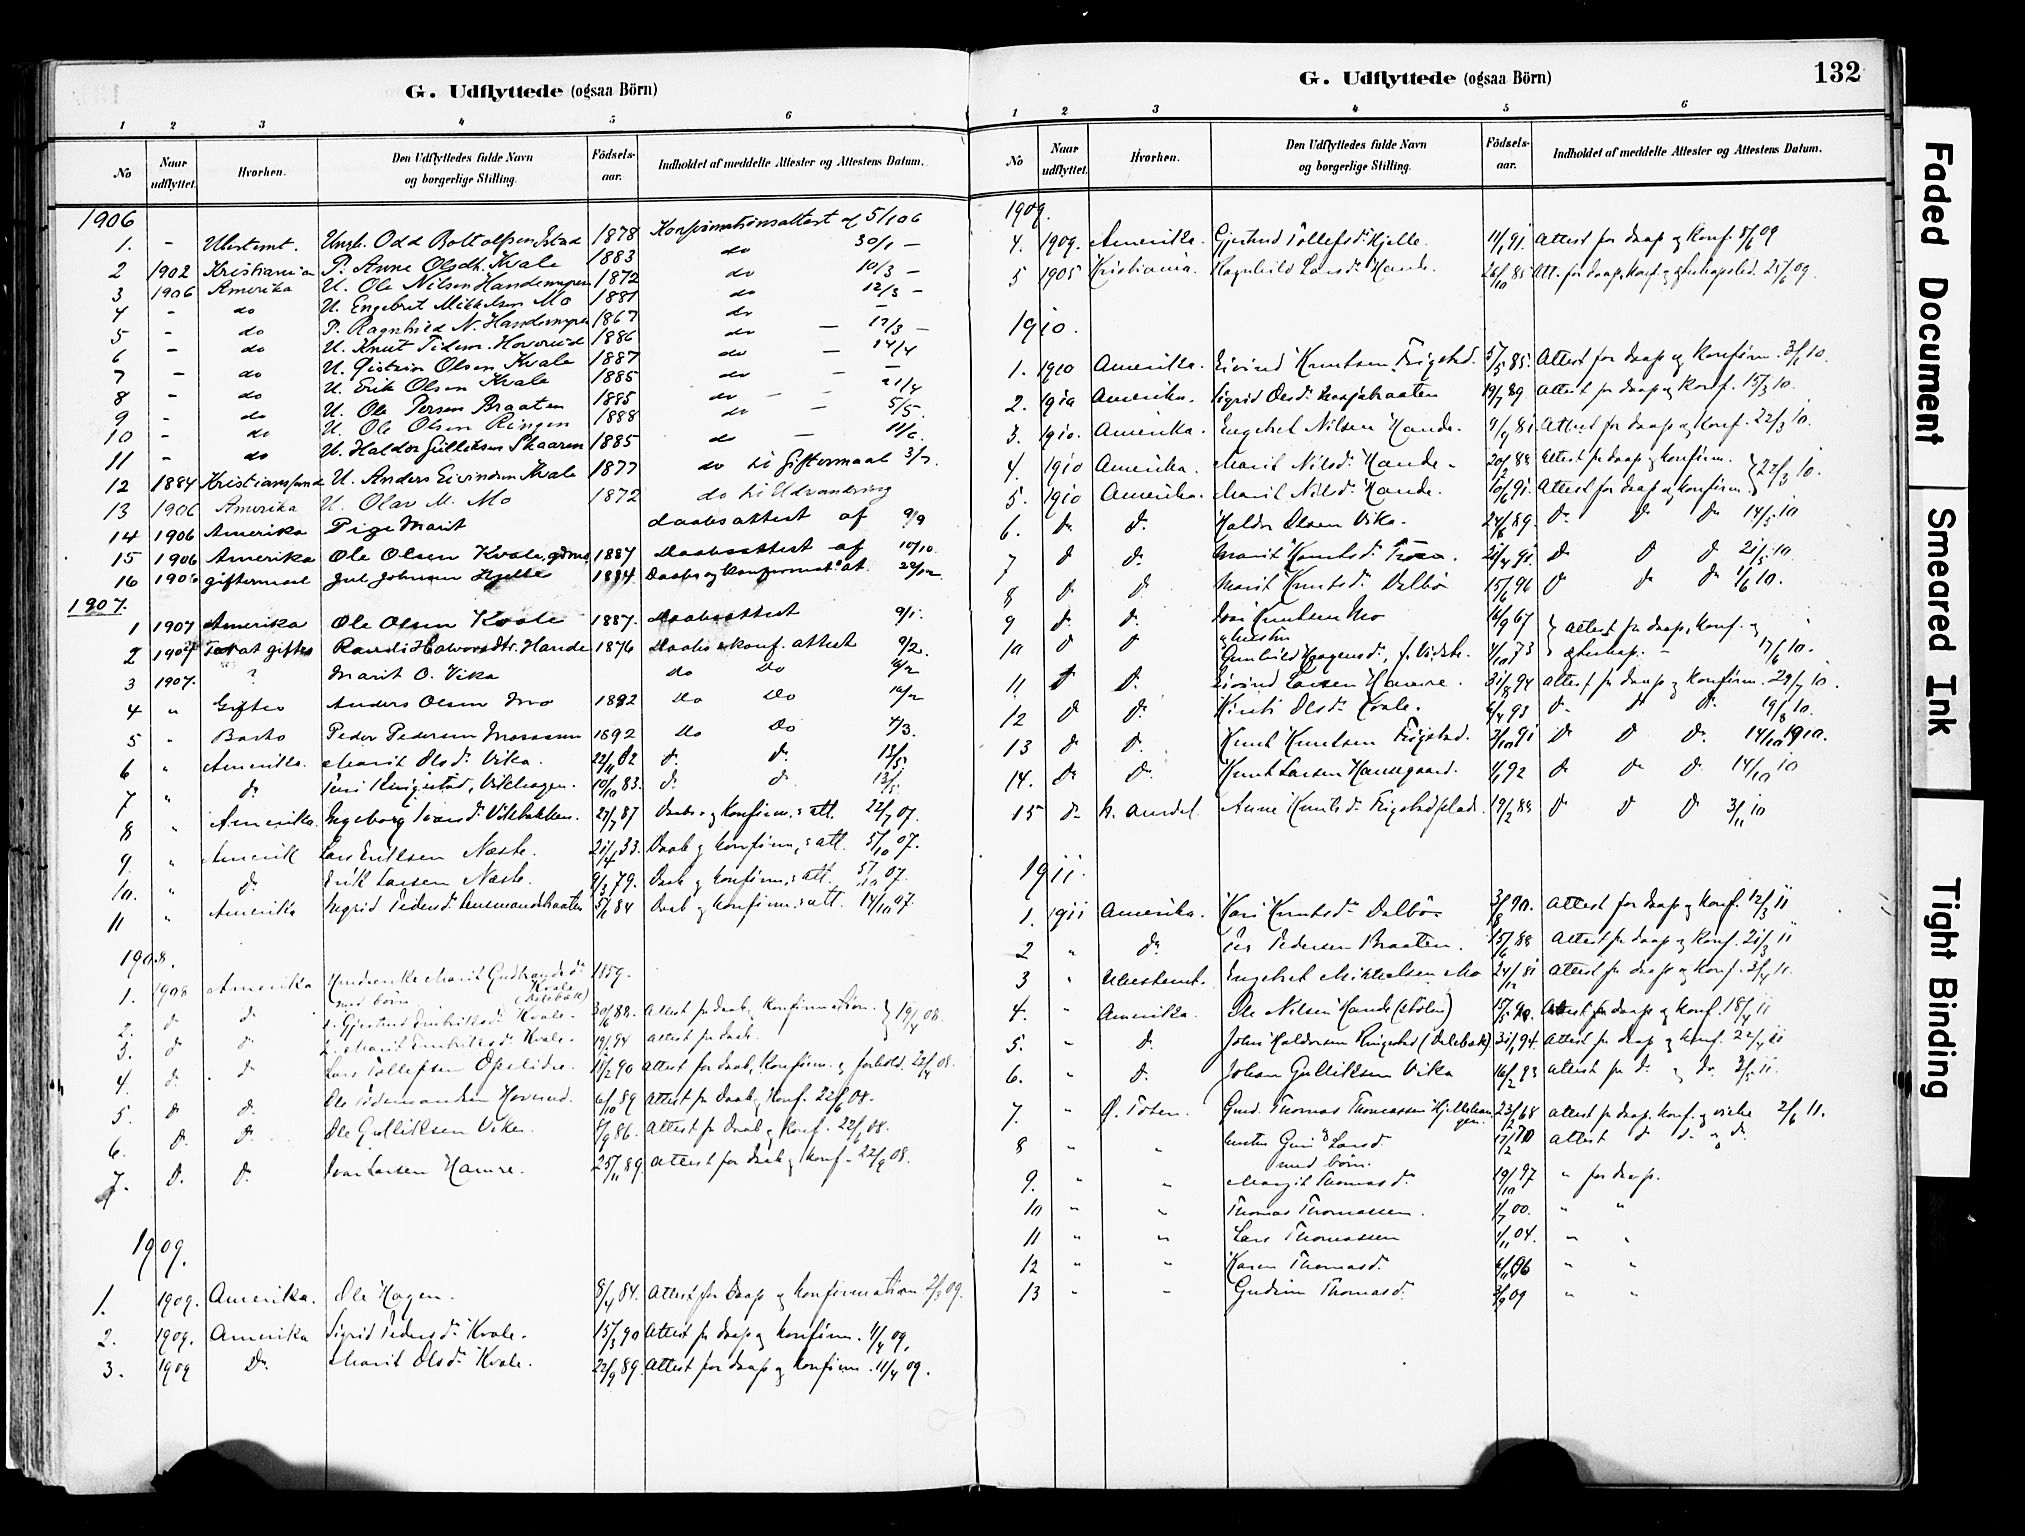 G. Udflyttede (ogsaa Börn)
1 2 3 4 5 6
No Naar udflyttet. Hvorhen. Den Udflyttedes fulde Navn og borgerlige Stilling. Födsels-aar. Indholdet af meddelte Attester og Attestens Datum.
1906
1. - Ubestemt. Ungk. Odd 1878 Konfirmationsattest af 5/1 06
2 1902 Kristiania P. Anne Olsdtr. Kvale 1883 do 30/1 -
3 1906 Amerika U. Ole Nilsen 1872 do 10/3 -
4 - do U. Engebret Mikkelsen Mo 1881 do 12/3 -
5 - do P. Ragnhild N. 1867 do -
6 - do U. Knut Tidem. Hoverud 1886 do - 17/3 -
7 - do U. Olsen Kvale 1887 do - 14/4
8 - do U. Erik Olsen Kvale 1885 do - -
9 - do U. Ole Persen Braaten 1885 do - - 21/4
10 - do U. Ole Olsen Ringen 1888 do - 5/5.
11 - do U. Haldor Gulliksen Skaaren 1885 do - 11/6.
12 1884 Kristiansund U. Anders Eivindsen Kvale 1877 do til Giftermaal 3/7.
13 1906 Amerika U. Olav M. Mo 1872 do til Udvandring
14 1906 Amerika Pige Marit daabsattest af 9/9
15 1906 Amerika Ole Olsen Kvale, 1887 Daabsattest af 10/10
16 1906 giftermaal Johnsen Hjelle 1884 Daabs og konfirmat. at. 22/12
1907.
1 1907 Amerika Ole Olsen Kvale 1887. Daabsattest 9/1.
2 1907 at giftes Randi Halvorsdtr. Hande 1876 Daabs & konf. attest 9/2.
3 1907. ? Marit O. Vika do Do
4 " Giftes Anders Olsen Mo 1882 Do Do
5 " Peder Pedersen 1892 Do Do 7/3.
6 " Amerika. Marit Olsd. Vika. 22/11 82 d. d. 13/5.
7 " do Ringestad, Vikhagen. 10/10 83. d. d.
8 " Amerika. Ingeborg Ivarsd. Vikebakken. 27/7 87 Daabs- og Konfirm. s att. 22/7 07.
9. " Amerik Lars Eriksen Næste. Daab og konfirm. s att. 5/10 07.
10. " d. Erik Larsen Næste. 9/3 79. Daab og konfirm. s att. 5/10 07.
11 " Amerika Sigrid Pedersd. 84 Daab og konfirm. s att. 14/10 07.
1908.
1. 1908 Amerika Marit Gudbrandsd. Kvale (Dalebak) 1859.
med børn
2. d d Gjertrud Kvale. 30/6 88. Attest for daab og konfirmation. } 19/4 08.
3. d d Marit Kvale. 94 attest for daab.
4. d. d Lars Tollefsen Opslidre. 90 attest for daab, konfirm. og forhold. 23/4 08.
5. d d. Ole Tidemandsen Hoverud. 6/10 89 attest for Daab og Konf. 22/6 08.
6. D. D. Ole Gulliksen Vika. 86. Attest for Daab og konf. 08.
7. D. D. Ivar Larsen Hamre. 25/11 89. Attest for daab og konf. 22/9 08.
1909.
1. 1909. Amerika. Ole Hagen. 8/4 84. Attest for Daab og konfirmation 2/3 09.
2. 1909. Amerika Sigrid Pedersd. Kvale. 15/3 90 Attest for daap og konfirm. 11/4 09.
3. 1909 Do Marit Olsd. Kvale. 22/9 89. Attest for daap og konfirm. 11/4 09.
G. Udflyttede (ogsaa Börn)
132
1 2 3 4 5 6
No Naar udflyttet. Hvorhen. Den Udflyttedes fulde Navn og borgerlige Stilling. Födsels-aar. Indholdet af meddelte Attester og Attestens Datum.
1909.
4. 1909. Amerika. Gjertrud Tollefsd. Hjelle. 11/1 91. Attest for daap og Konf. 8/6 09
5 1905 Kristiania. Ragnhild Larsd. Hande. 26/10 85 Att. for daap, konf. og 25/6 09.
1910.
1. 1910 Amerika. Eivind Knutsen Frigstad. 5/5 85. Attest for daap og Konfirm. 3/1 10.
2. 1910 Amerika. Sigrid Olsd. 19/7 89 Attest for daap og konf. 15/3 10.
3. 1910. Amerika. Engebret Nilsen Hande. 81 Attest for daap og konf. 22/3 10.
4. 1910 Amerika. Marit Nilsd. Hande. 88 Attest for daap og konfirm. } 22/3 10.
5. 1910 Amerika. Marit Nilsd. Hande. 10/6 91. Attest for daap og konfirm.
6. Do Do Haldor Olsen Vika. 24/6 89. Do Do Do 14/5 10
7 D Do Marit Knutsd. 21/4 91 D D D 21/5 10
8 D D Marit Knutsd. Dalbø 15/6 96 D Do Do 1/6 10.
9 D. D. Ivar Knutsen Mo 16/9 67 } attest for daap, konf. og
10 D D hustru Gunhild Haagensd., f. 4/10 73 17/6 10.
11 D D. Eivind Larsen Hamre. 31/8 94 Attest for daap og konfirm. 29/7 10.
12 D D. Kirsti Olsd. Kvale. 93 D. D D. 19/8 10.
13 D D. Knut Knutsen Frigstad. 3/10 91 D D D. 14/10 1910.
14. Do D. Knut Larsen Hamregaard. 92 D Do Do 14/10 10
15 Do Anne Knutsd. 19/2 88 D D D 3/11 10
1911.
1. 1911 Amerika. Kari Knutsd. Dalbø 3/8 90. Attest for daap og konf. 12/3 11
2 " Do Pedersen Braaten. 15/6 88 Attest for daap og konf. 21/3 11
3 " Ubestemt. Engebret Mikkelsen Mo 24/12 81 Attest for daap og konf. 3/4 11.
4. " Amerika. Ole Nilsen Hande (Stølen) 15/5 90. Attest for daap og konf. 18/4 11
5. " D. John Haldorsen Ringestad (Dalebak) 31/1 94. Attest for daap og konf. 22/4 11
6. " D. Johan Gulliksen Vika 16/2 93 Attest for D. og Do. 3/5 11.
7. " Ø. Toten. Gmd. Thomas Thomassen Hjellehaugen. 23/2 68 Attest for daap, konf. og vielse 2/6 11.
8 " " hustru Guri Larsd. 17/12 70 Attest d d. " d.
med børn.
9. " " Margit Thomasd. 19/10 97 " for daap.
10 " " Thomas Thomassen. 1/7 00. " "
11 " " Lars Thomassen 1/11 04. " "
12 " " Karen Thomasd. 6/11 06 " "
13 " " Gudrun Thomasd. 3/9 09 " "
Faded Document
Smeared Ink
Tight Binding